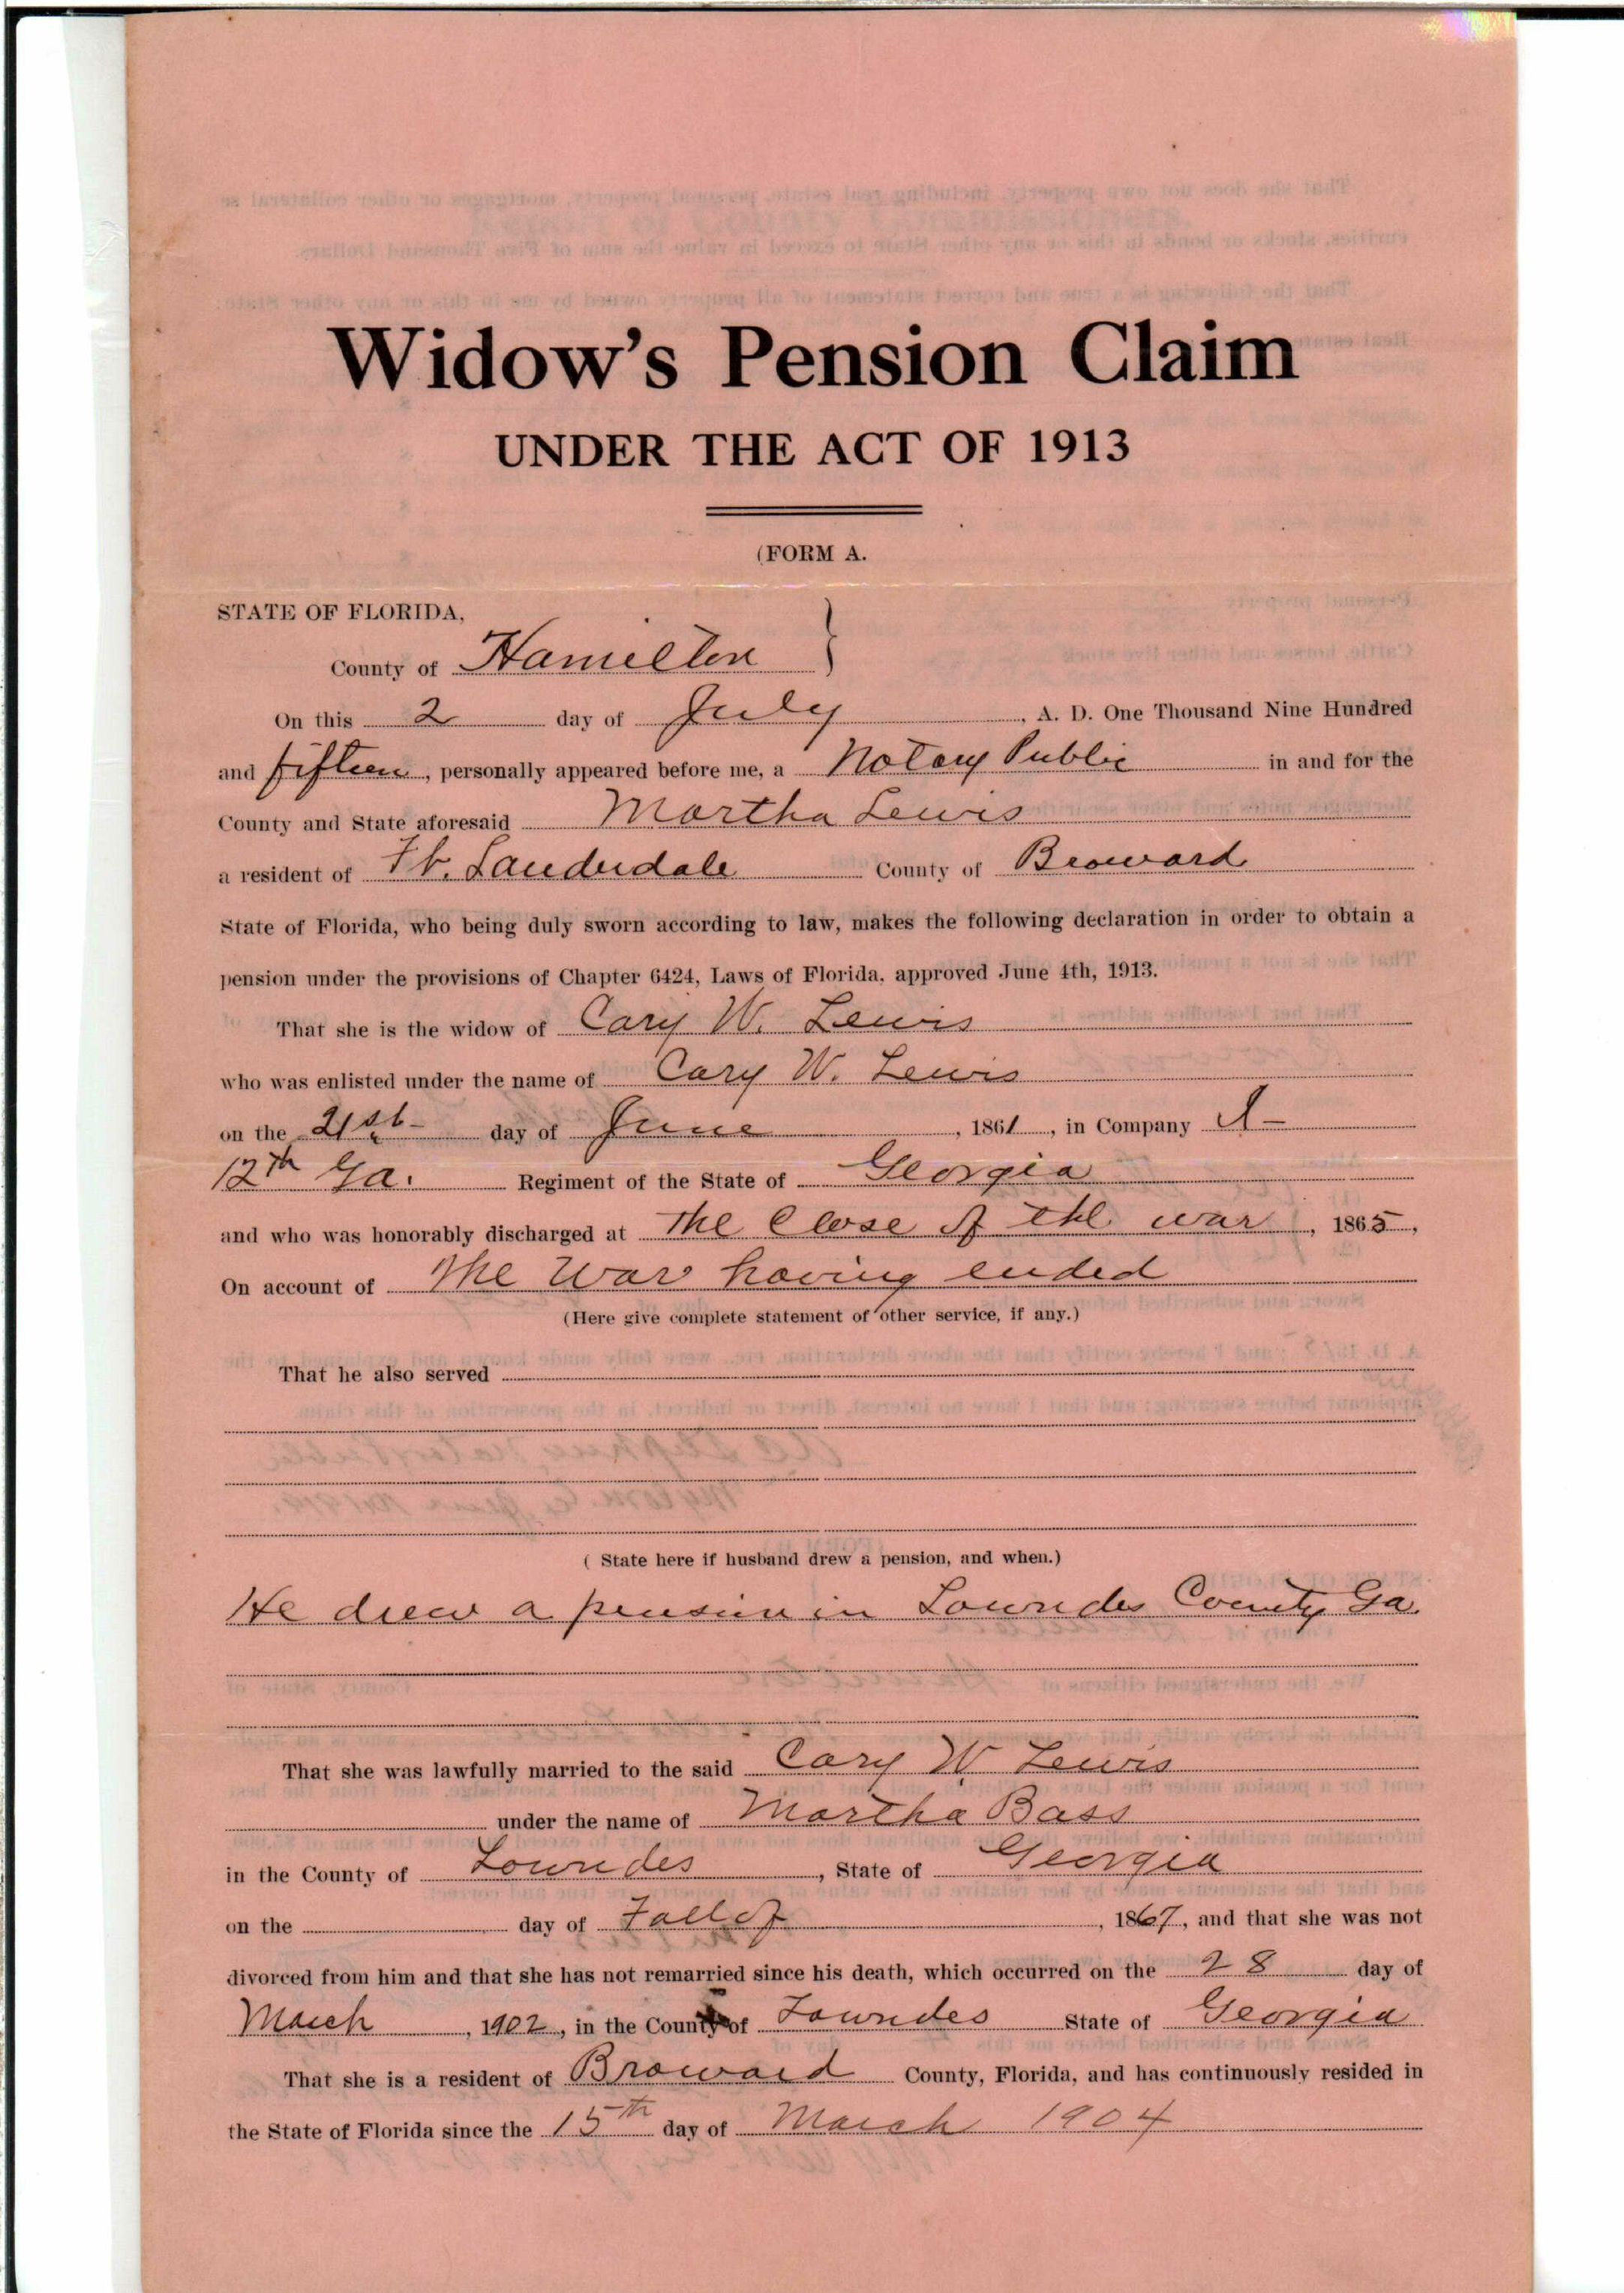 Widow's Pension Claim
UNDER THE ACT OF 1913
(FORM A.
STATE OF FLORIDA,
County of Hamilton }
On this 2 day of July, A. D. One Thousand Nine Hundred
and fifteen, personally appeared before me, a Notary Public in and for the
County and State aforesaid Martha Lewis
a resident of Ft. Lauderdale County of Broward
State of Florida, who being duly sworn according to law, makes the following declaration in order to obtain a
pension under the provisions of Chapter 6424, Laws of Florida, approved June 4th, 1913.
That she is the widow of Cary W. Lewis
who was enlisted under the name of Cary W. Lewis
on the 21st day of June, 1861, in Company I
12th Ga. Regiment of the State of Georgia
and who was honorably discharged at The Close of the war, 1865,
On account of The War having ended
(Here give complete statement of other service, if any.)
That he also served
( State here if husband drew a pension, and when.)
He drew a pension in Lowndes County Ga.
That she was lawfully married to the said Cary W Lewis
under the name of Martha Bass
in the County of Lowndes, State of Georgia
on the day of Fall of, 1867, and that she was not
divorced from him and that she has not remarried since his death, which occurred on the 28 day of
March, 1902, in the County of Lowndes State of Georgia
That she is a resident of Broward County, Florida, and has continuously resided in
the State of Florida since the 15th day of March 1904